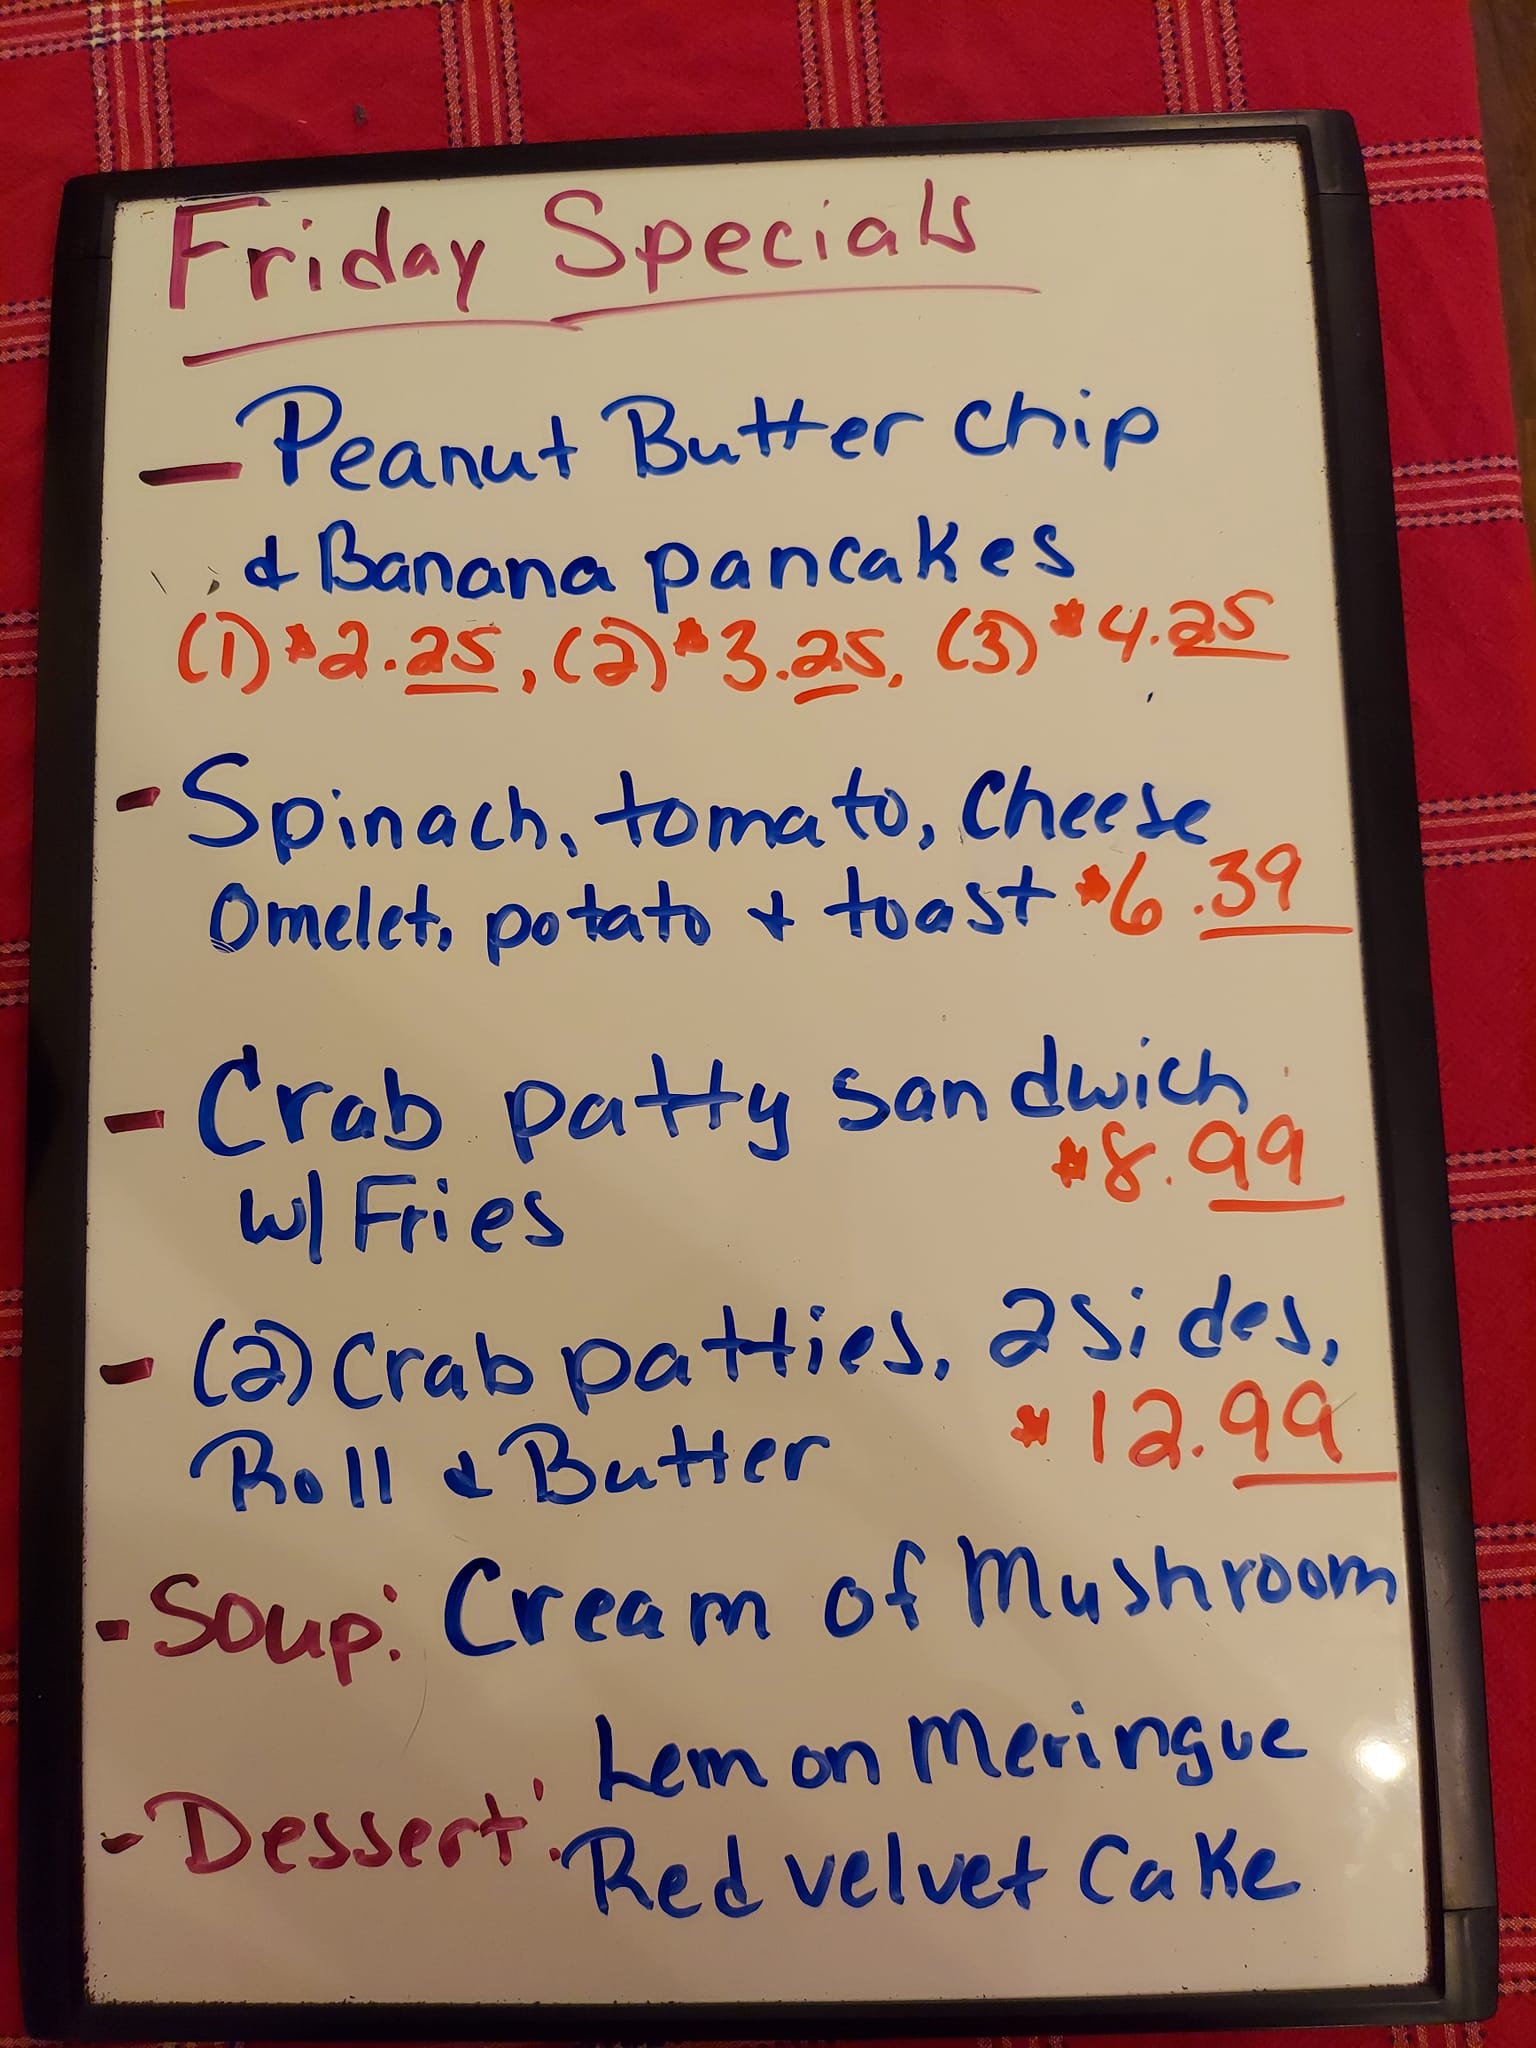 Friday Specials
- Peanut Butter chip
& Banana pancakes
(1) $2.25, (2) $3.25, (3) $4.25
- Spinach, tomato, cheese
Omelet, potato & toast $6.39
- Crab patty sandwich
w/ Fries $8.99
- (2) Crab patties, 2 sides,
Roll & Butter $12.99
- Soup: Cream of Mushroom
- Dessert: Lemon Meringue
Red velvet Cake